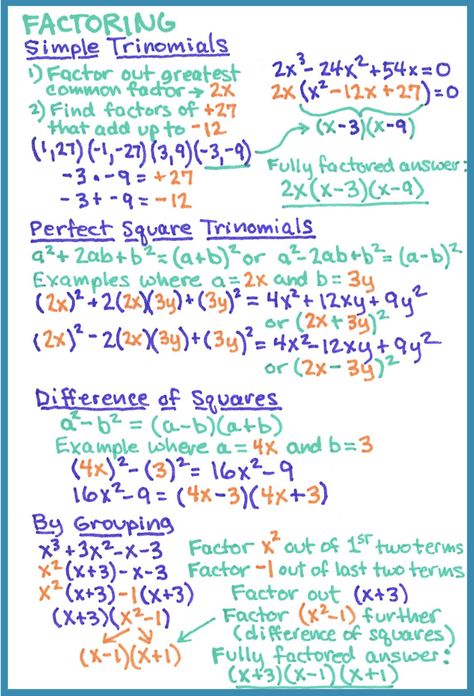 FACTORING
Simple Trinomials
1) Factor out greatest
common factor → 2x
2) Find factors of +27
that add up to -12
(1,27)(-1,-27)(3,9)(-3,-9)
-3 • -9 = +27
-3 + -9 = -12
2x³ - 24x² + 54x = 0
2x(x² - 12x + 27) = 0
(x-3)(x-9)
Fully factored answer:
2x(x-3)(x-9)
Perfect Square Trinomials
a² + 2ab + b² = (a+b)² or a² - 2ab + b² = (a-b)²
Examples where a = 2x and b = 3y
(2x)² + 2(2x)(3y) + (3y)² = 4x² + 12xy + 9y²
or (2x + 3y)²
(2x)² - 2(2x)(3y) + (3y)² = 4x² - 12xy + 9y²
or (2x - 3y)²
Difference of Squares
a² - b² = (a-b)(a+b)
Example where a = 4x and b = 3
(4x)² - (3)² = 16x² - 9
16x² - 9 = (4x-3)(4x+3)
By Grouping
x³ + 3x² - x - 3
x²(x+3) - x - 3
x²(x+3) -1(x+3)
(x+3)(x²-1)
(x-1)(x+1)
Factor x² out of 1ST two terms
Factor -1 out of last two terms
Factor out (x+3)
Factor (x²-1) further
(difference of squares)
Fully factored answer:
(x+3)(x-1)(x+1)